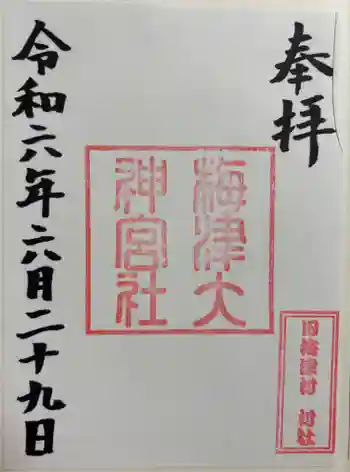 奉拝
梅津大
神宮社
旧梅津村 村社
令和六年六月二十九日